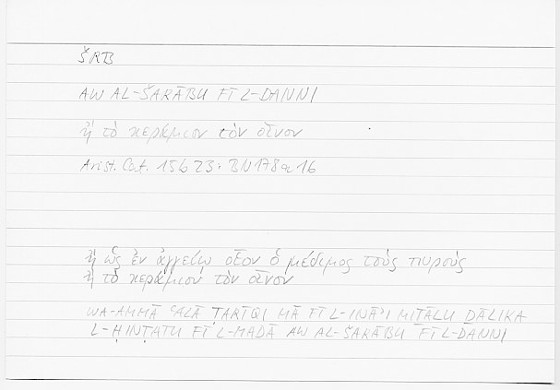 ŠRB
AW AL-ŠARĀBU FĪ L-DANNI
ἢ τὸ κεράμιον τὸν οἶνον
Arist. Cat. 15b23 · BN178a16
ἢ ὡς ἐν ἀγγείῳ οἷον ὁ μέδιμνος τοὺς πυροὺς
ἢ τὸ κεράμιον τὸν οἶνον
WA-AMMĀ ʿALĀ ṬARĪQI MĀ FĪ L-INĀʾI MIṮĀLU ḎĀLIKA
L-ḤINṬATU FĪ L-MADĀ AW AL-ŠARĀBU FĪ L-DANNI